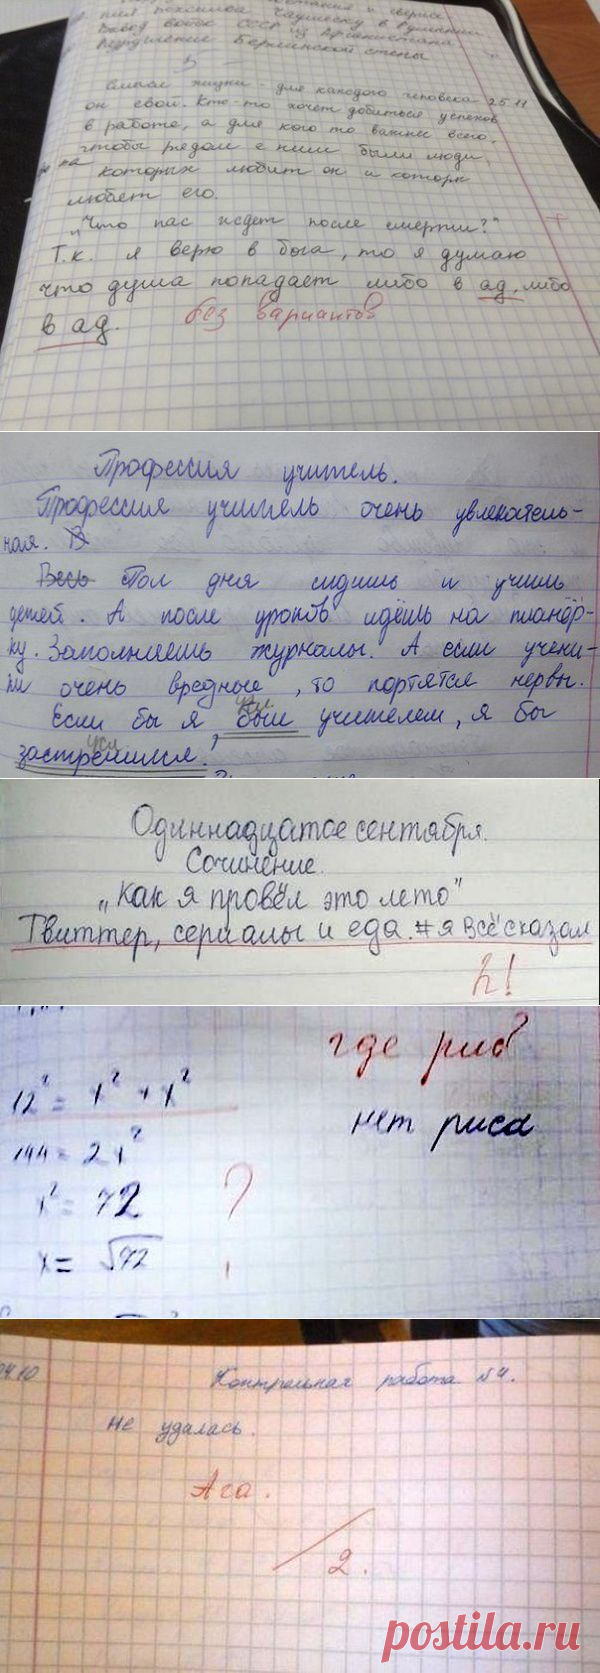 Ввод войск СССР из Афганистана
Разрушение Берлинской стены
Смысл жизни - для каждого человека 25.11
он свой. Кто-то хочет добиться успехов
в работе, а для кого то важнее всего,
чтобы рядом с ним были люди,
которых любит он и которые
любят его.
"Что нас ждет после смерти?"
Т.к. я верю в бога, то я думаю
что душа попадает либо в ад, либо
в ад. без вариантов
Профессия учитель.
Профессия учитель очень увлекатель-
ная. В
Весь Пол дня сидишь и учишь
детей. А после уроков идёшь на планёр-
ку. Заполняешь журналы. А если учени-
ки очень вредные, то портятся нервы.
Если бы я был учителем, я бы
застрелился.
Одиннадцатое сентября.
Сочинение.
"Как я провёл это лето"
Твиттер, сериалы и еда. #я всё сказал
2!
где рис?
12² = x² + x²
нет риса
144 = 2x²
x² = 72
?
x = √72
04.10 Контрольная работа №4.
Не удалась.
Ага.
2.
postila.ru